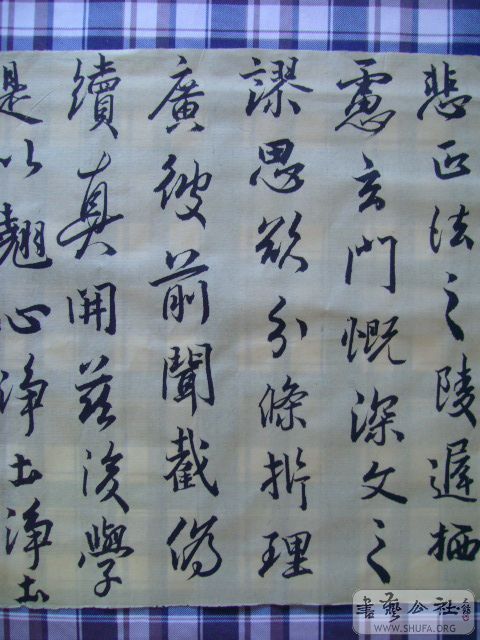 悲正法之陵遲栖
慮玄門慨深文之
謬思欲分條析理
廣彼前聞截偽
續真開茲後學
是以翹心淨土淨土
書藝公社
WWW.SHUFA.ORG